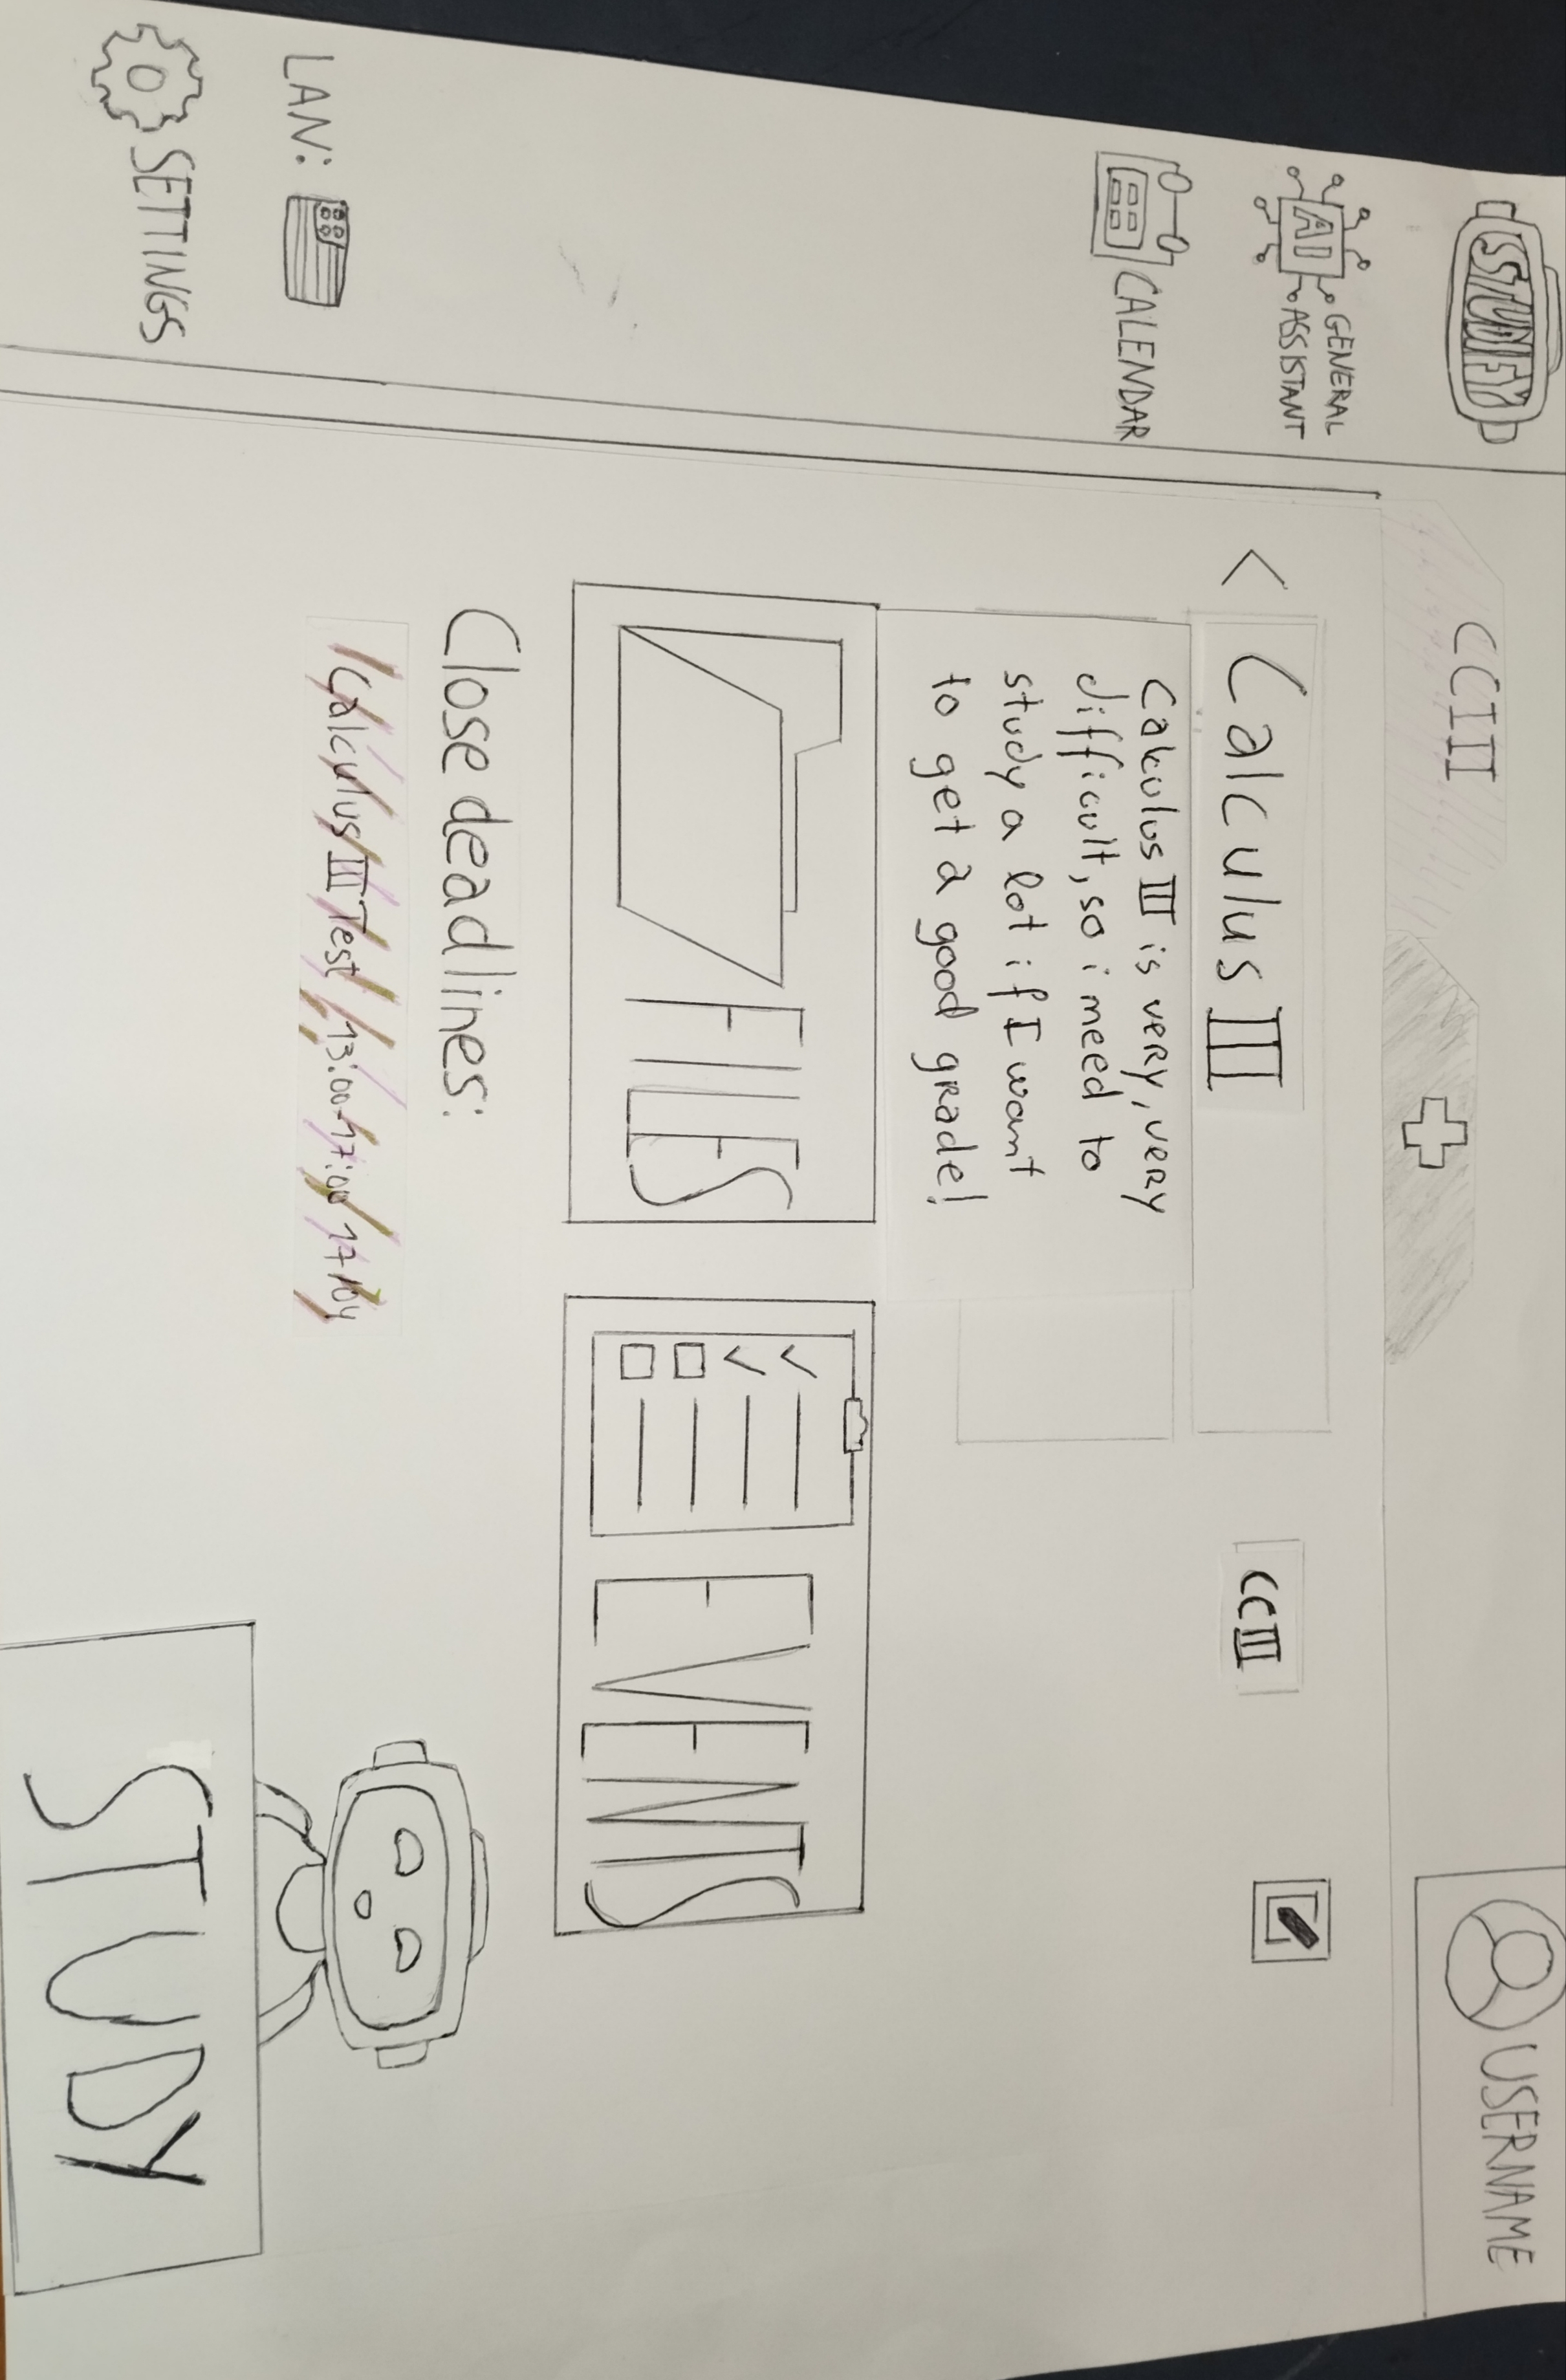 STUDIFY
CCIII
USERNAME
AI GENERAL
ASSISTANT
CALENDAR
LAN:
SETTINGS
< Calculus III
CCIII
Calculus III is very, very
difficult, so i need to
study a lot if I want
to get a good grade!
FILES
EVENTS
Close deadlines:
Calculus III Test 13:00-17:00 17/04
STUDY